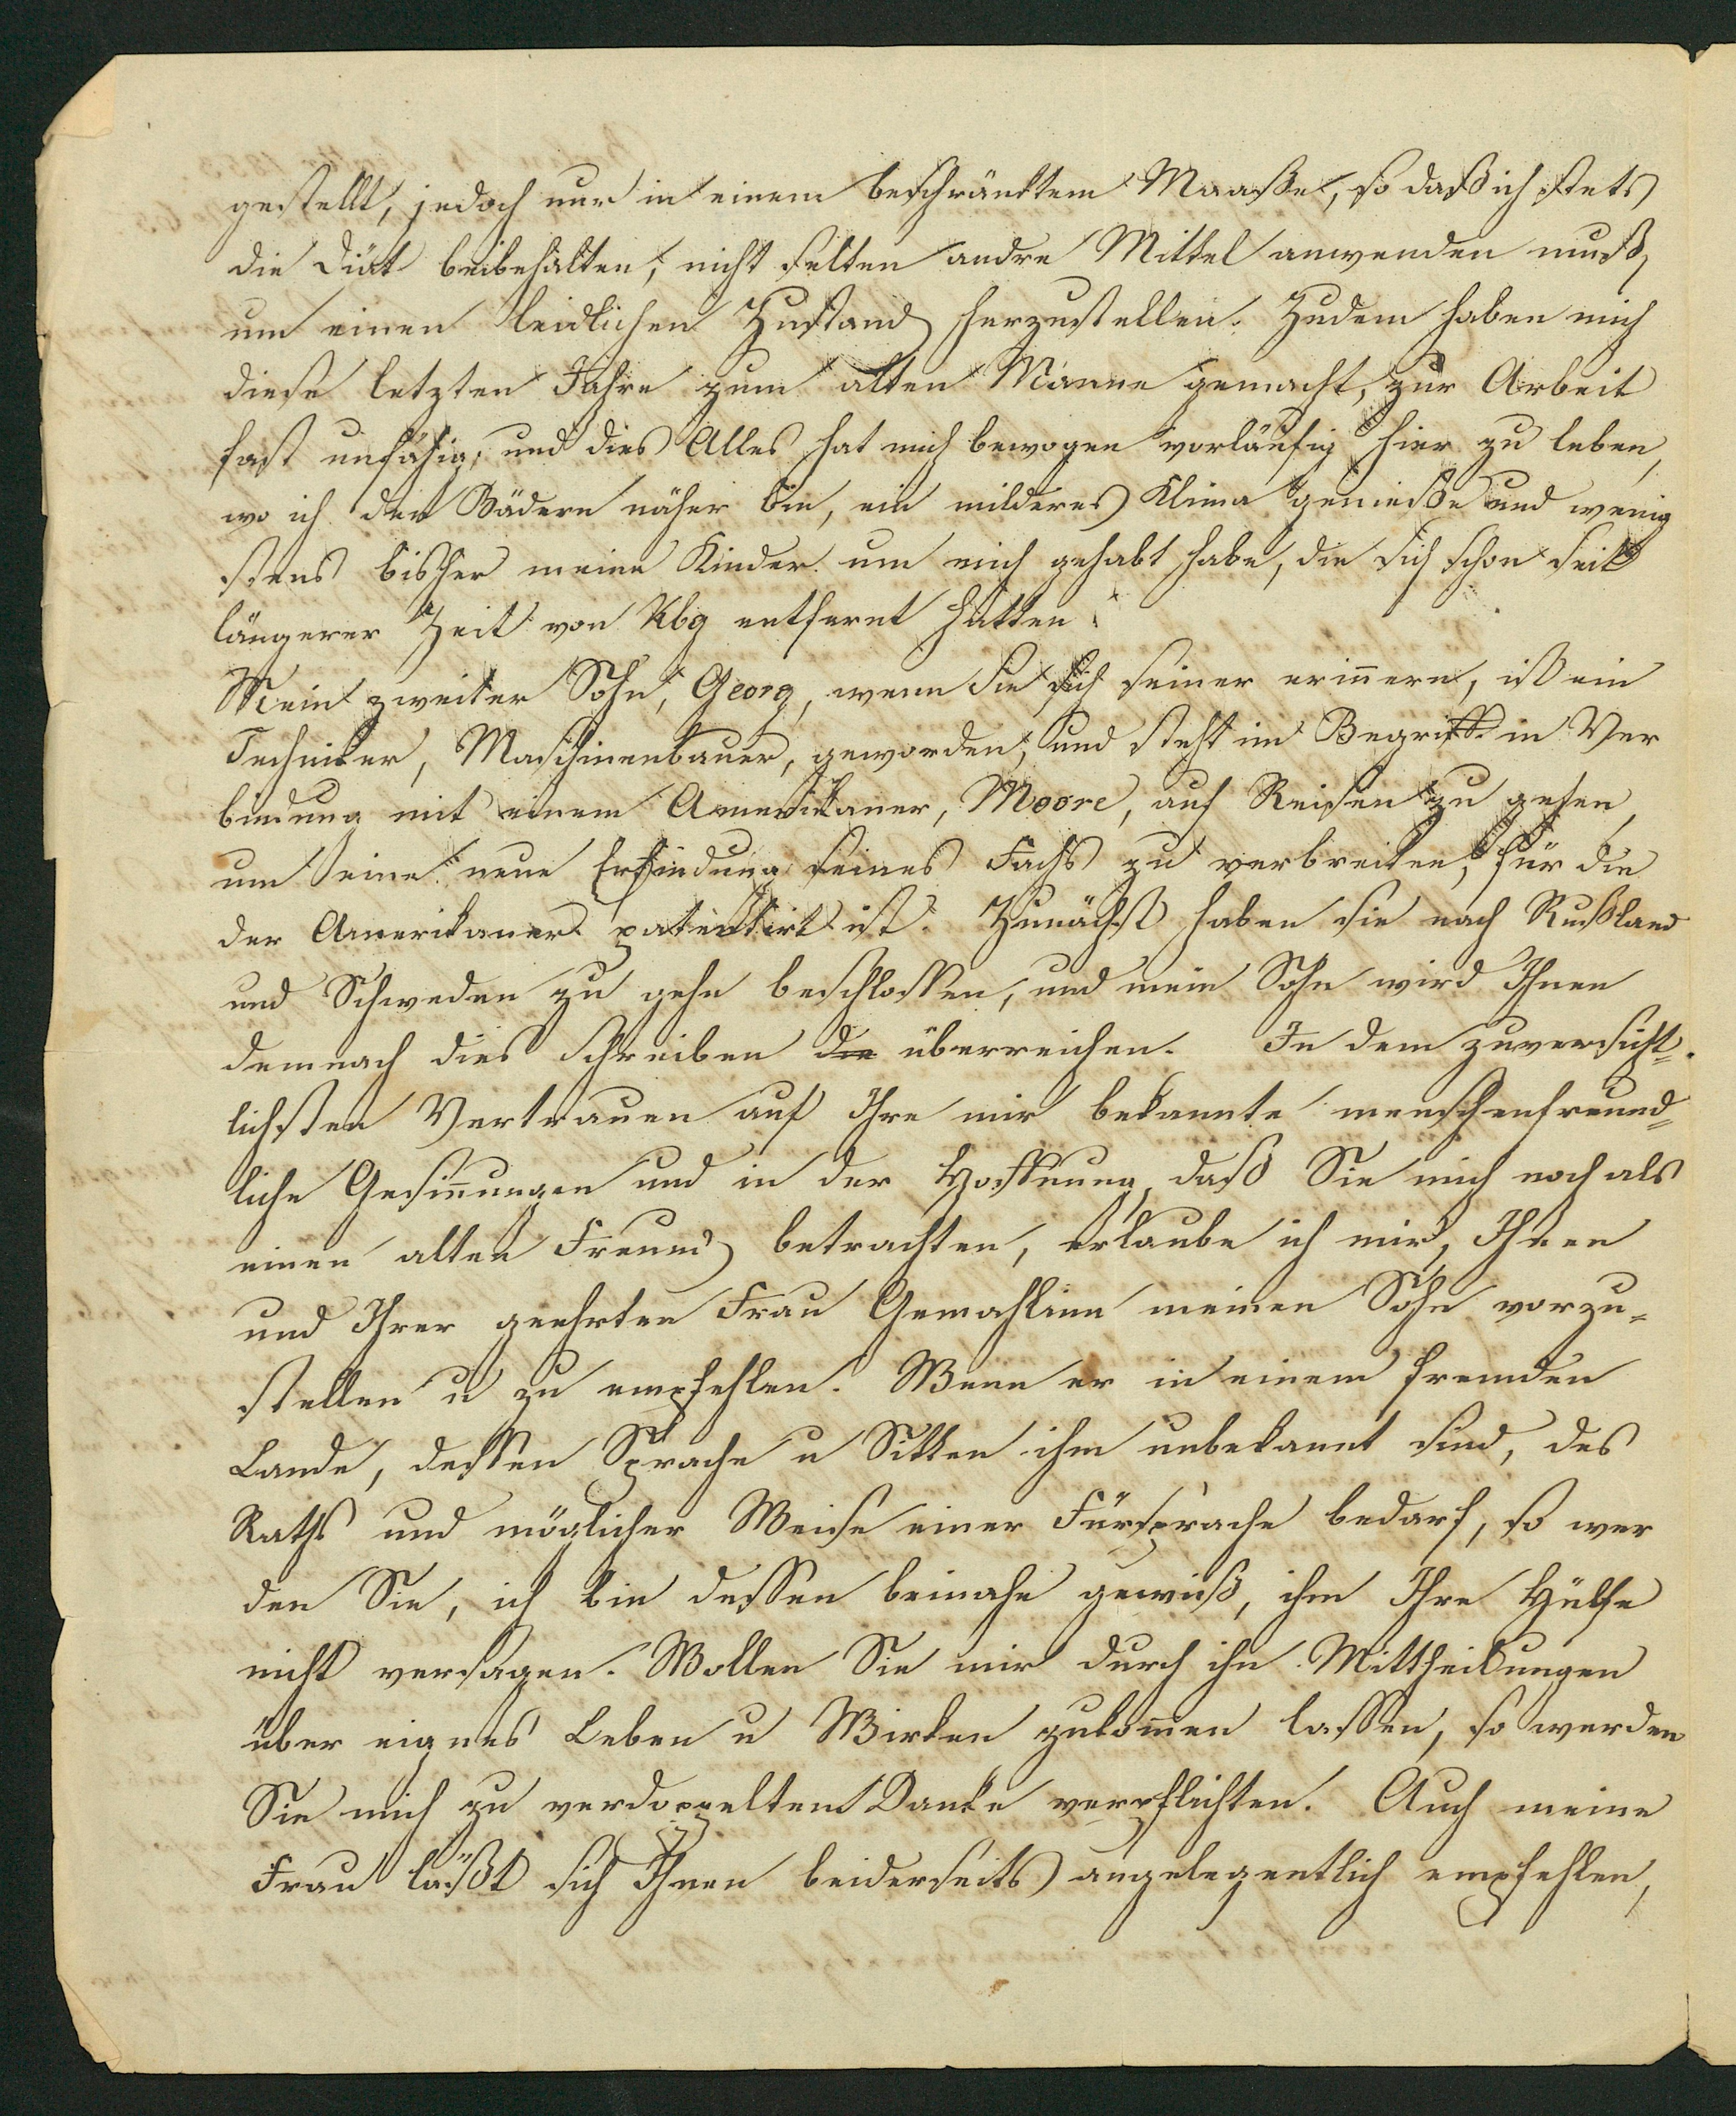 gestellt, jedoch nur in einem beschränktem Maaße, so daß ich stets
die Diät beibehalten, nicht selten andre Mittel anwenden muß,
um einen leidlichen Zustand herzustellen. Zudem haben mich
diese letzten Jahre zum alten Manne gemacht, zur Arbeit
fast unfähig, und dies Alles hat mich bewogen vorläufig hier zu leben,
wo ich den Bädern näher bin, ein milderes Klima genieße und wenig
stens bisher meine Kinder um mich gehabt habe, die sich schon seit
längerer Zeit von Kbg entfernt hatten.
Mein zweiter Sohn, Georg, wenn Sie sich seiner erinnern, ist ein
Techniker, Maschinenbauer, geworden, und steht im Begriff in Ver
bindung mit einem Amerikaner, Moore, auf Reisen zu gehen,
um eine neue Erfindung seines Fachs zu verbreiten, für die
der Amerikaner patentirt ist. Zunächst haben sie nach Rußland
und Schweden zu gehn beschlossen, und mein Sohn wird Ihnen
demnach dies Schreiben die überreichen. In dem zuversicht-
lichsten Vertrauen auf Ihre mir bekannte menschenfreund-
liche Gesinnungen und in der Hoffnung, daß Sie mich noch als
einen alten Freund betrachten, erlaube ich mir, Ihnen
und Ihrer geehrten Frau Gemahlinn meinen Sohn vorzu-
stellen u zu empfehlen. Wenn er in einem fremden
Lande, dessen Sprache u Sitten ihm unbekannt sind, des
Raths und möglicher Weise einer Fürsprache bedarf, so wer
den Sie, ich bin dessen beinahe gewiß, ihm Ihre Hülfe
nicht versagen. Wollen Sie mir durch ihn Mittheilungen
über eignes Leben u Wirken zukommen lassen, so werden
Sie mich zu verdoppeltem Danke verpflichten. Auch meine
Frau läßt sich Ihnen beiderseits angelegentlich empfehlen,